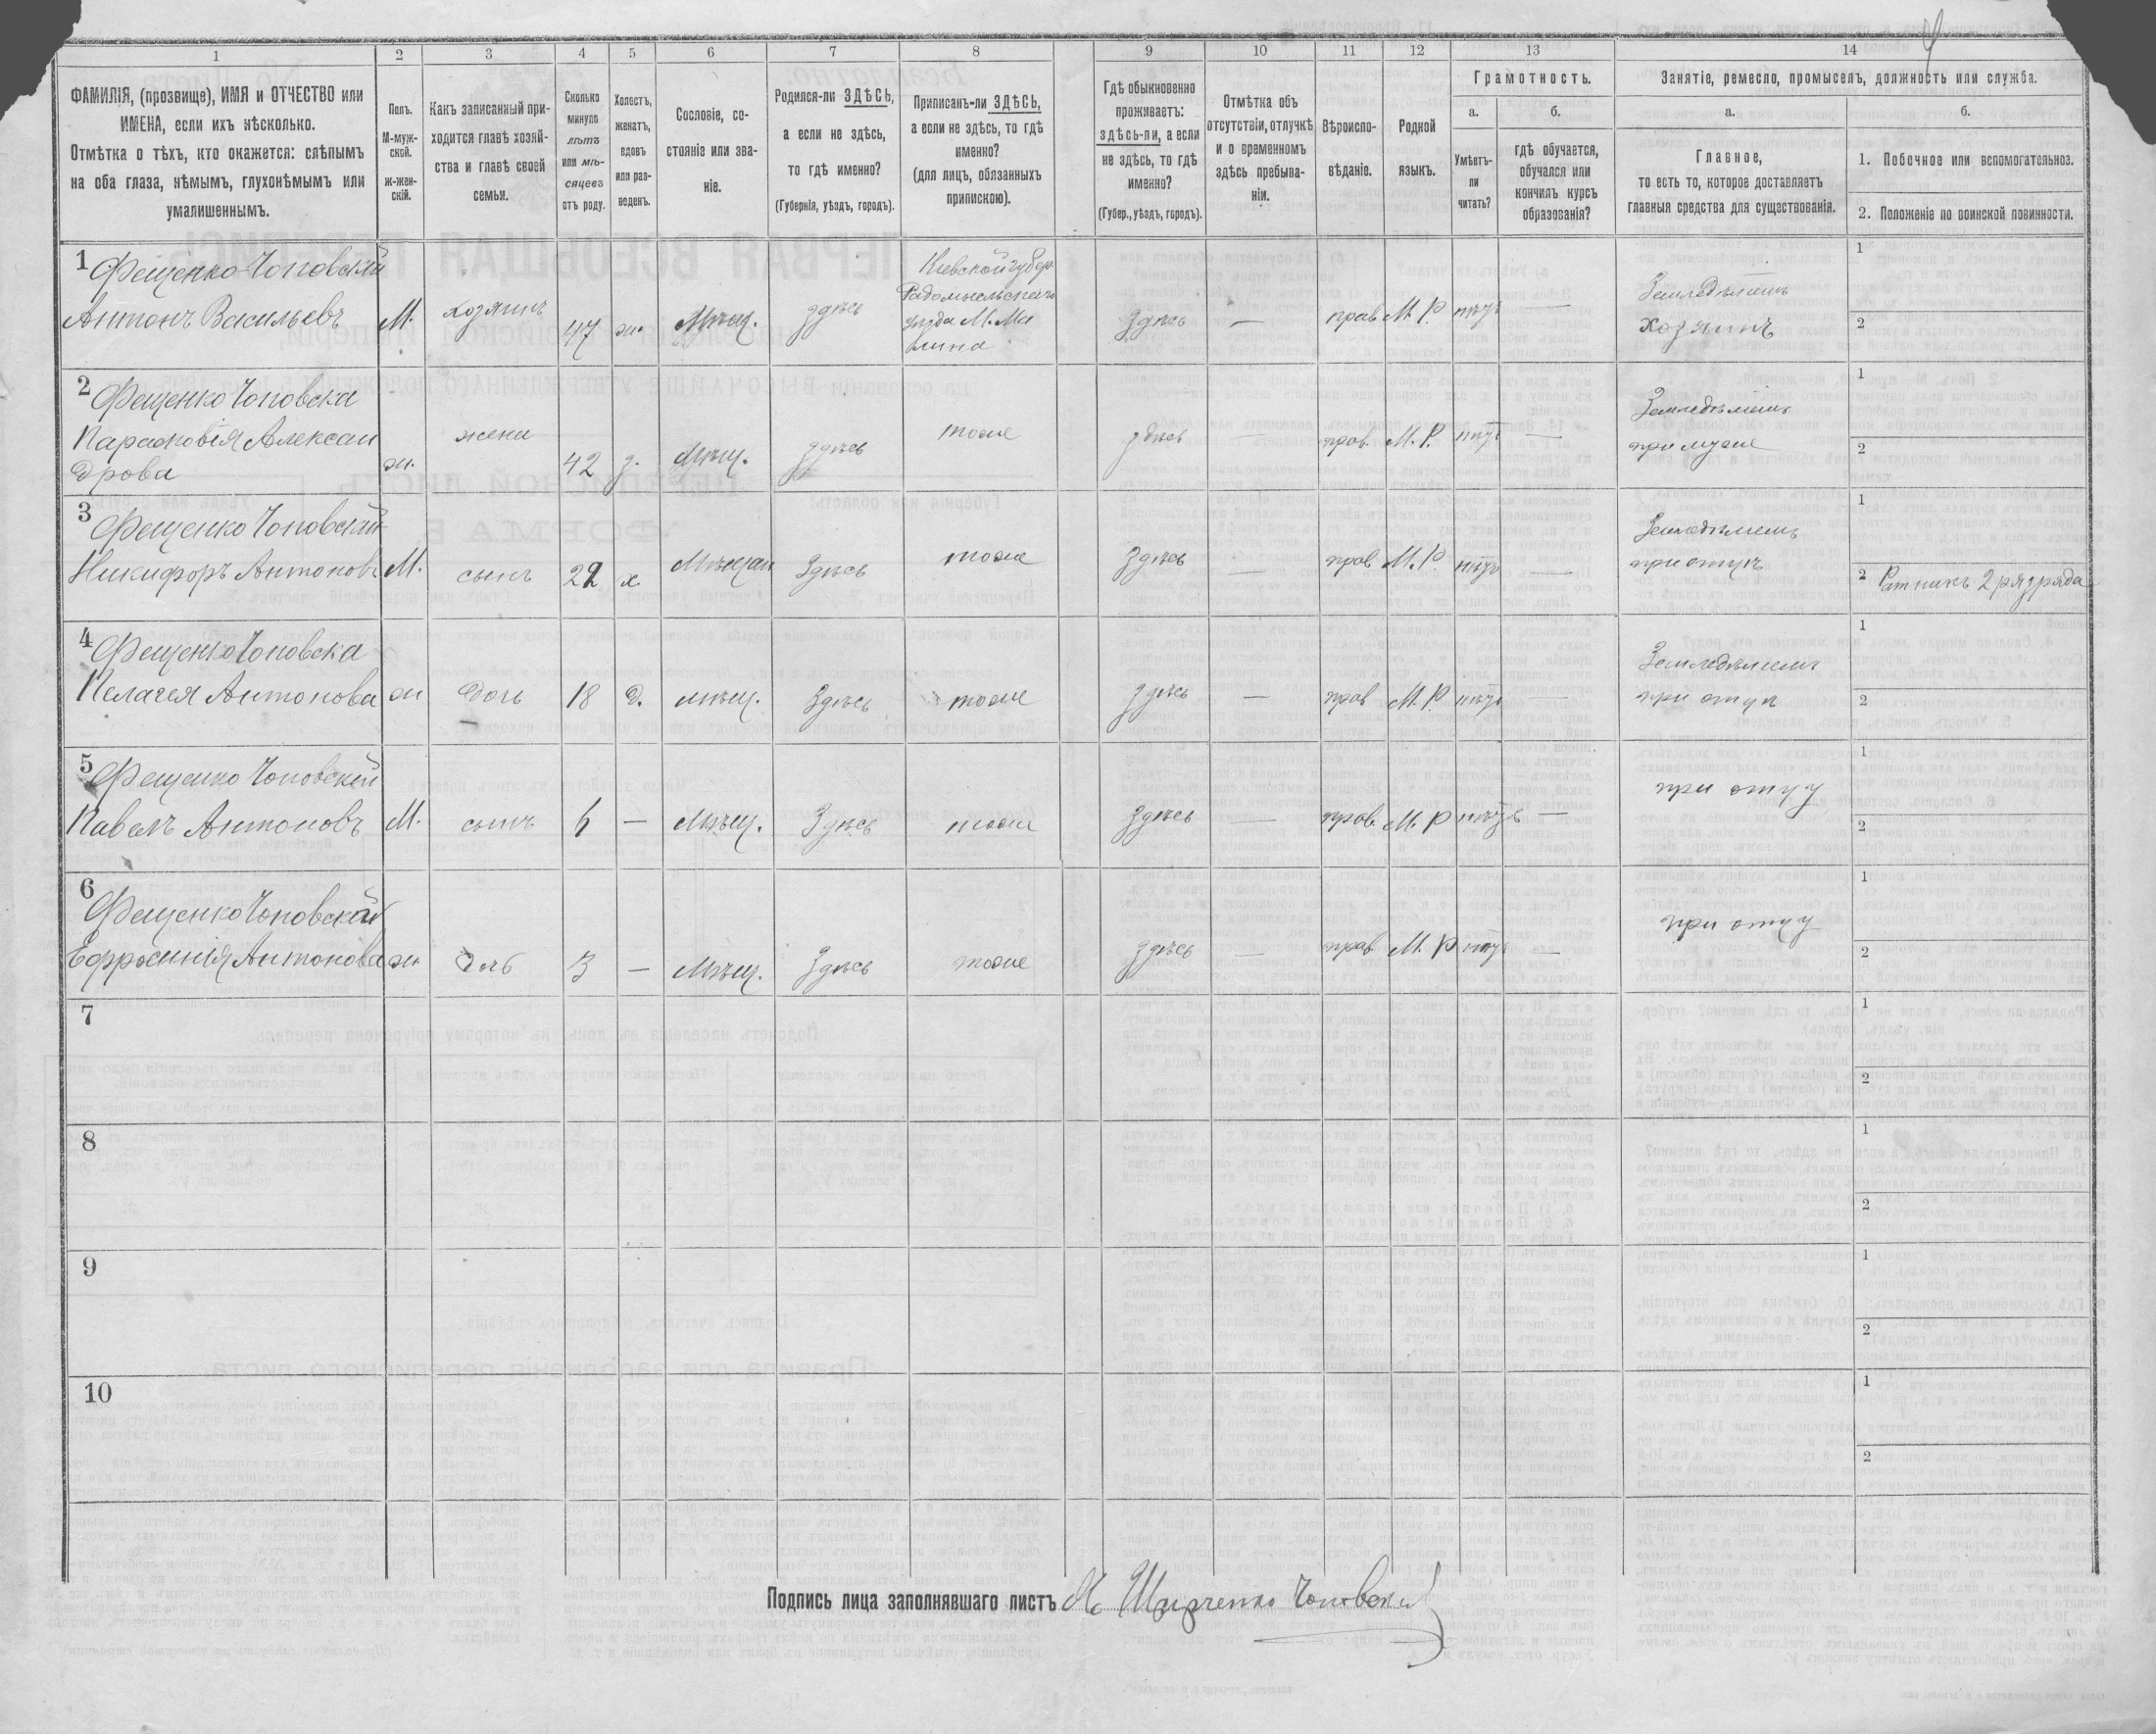 1 2 3 4 5 6 7 8 9 10 11 12 13 14
ФАМИЛІЯ, (прозвище), ИМЯ и ОТЧЕСТВО или
ИМЕНА, если ихъ нѣсколько.
Отмѣтка о тѣхъ, кто окажется: слѣпымъ
на оба глаза, нѣмымъ, глухонѣмымъ или
умалишеннымъ.
Полъ.
М-муж-
ской.
ж-жен-
скій.
Какъ записанный при-
ходится главѣ хозяй-
ства и главѣ своей
семьи.
Сколько
минуло
лѣтъ
или мѣ-
сяцевъ
отъ роду.
Холостъ,
женатъ,
вдовъ
или раз-
веденъ.
Сословіе, со-
стояніе или зва-
ніе.
Родился-ли ЗДѢСЬ,
а если не здѣсь,
то гдѣ именно?
(Губернія, уѣздъ, городъ).
Приписанъ-ли ЗДѢСЬ,
а если не здѣсь, то гдѣ
именно?
(для лицъ, обязанныхъ
припискою).
Гдѣ обыкновенно
проживаетъ:
здѣсь-ли, а если
не здѣсь, то гдѣ
именно?
(Губер., уѣздъ, городъ).
Отмѣтка объ
отсутствіи, отлучкѣ
и о временномъ
здѣсь пребыва-
ніи.
Вѣроиспо-
вѣданіе.
Родной
языкъ.
Грамотность.
а.
Умѣетъ-
ли
читать?
б.
гдѣ обучается,
обучался или
кончилъ курсъ
образованія?
Занятіе, ремесло, промыселъ, должность или служба.
а.
Главное,
то есть то, которое доставляетъ
главныя средства для существованія.
б.
1. Побочное или вспомогательное.
2. Положеніе по воинской повинности.
1 Фещенко Чоповскій
Антонъ Васильевъ
М.
хозяинъ
47
ж.
Мѣщ.
здѣсь
Кіевской губер
Радомысльскаго
уѣзда М. Ма
лина
здѣсь
—
прав
М. Р.
нѣтъ
—
Земледѣлецъ
хозяинъ
1
2
2 Фещенко Чоповска
Парасковія Алексан
дрова
ж.
жена
42
з.
Мѣщ.
здѣсь
тоже
здѣсь
—
прав.
М. Р.
нѣтъ
—
Земледѣлецъ
при мужѣ
1
2
3 Фещенко Чоповскій
Никифоръ Антоновъ
М.
сынъ
22
х.
Мѣщан
Здѣсь
тоже
Здѣсь
—
прав
М. Р.
нѣтъ
—
Земледѣлецъ
при отцѣ
1
2 Ратникъ 2 разряда
4 Фещенко Чоповска
Пелагея Антонова
ж
Дочь
18
д.
мѣщ.
Здѣсь
тоже
здѣсь
—
прав
М. Р.
нѣтъ
—
Земледѣлецъ
при отцѣ
1
2
5 Фещенко Чоповскій
Павелъ Антоновъ
М.
сынъ
6
—
Мѣщ.
Здѣсь
тоже
здѣсь
—
прав.
М. Р
нѣтъ
—
при отцу
1
2
6 Фещенко Чоповскай
Ефросинія Антонова
ж
дочь
3
—
Мѣщ.
Здѣсь
тоже
здѣсь
—
прав
М. Р
нѣтъ
—
при отцу
1
2
7
1
2
8
1
2
9
1
2
10
1
2
Подпись лица заполнявшаго листъ Чоповскій